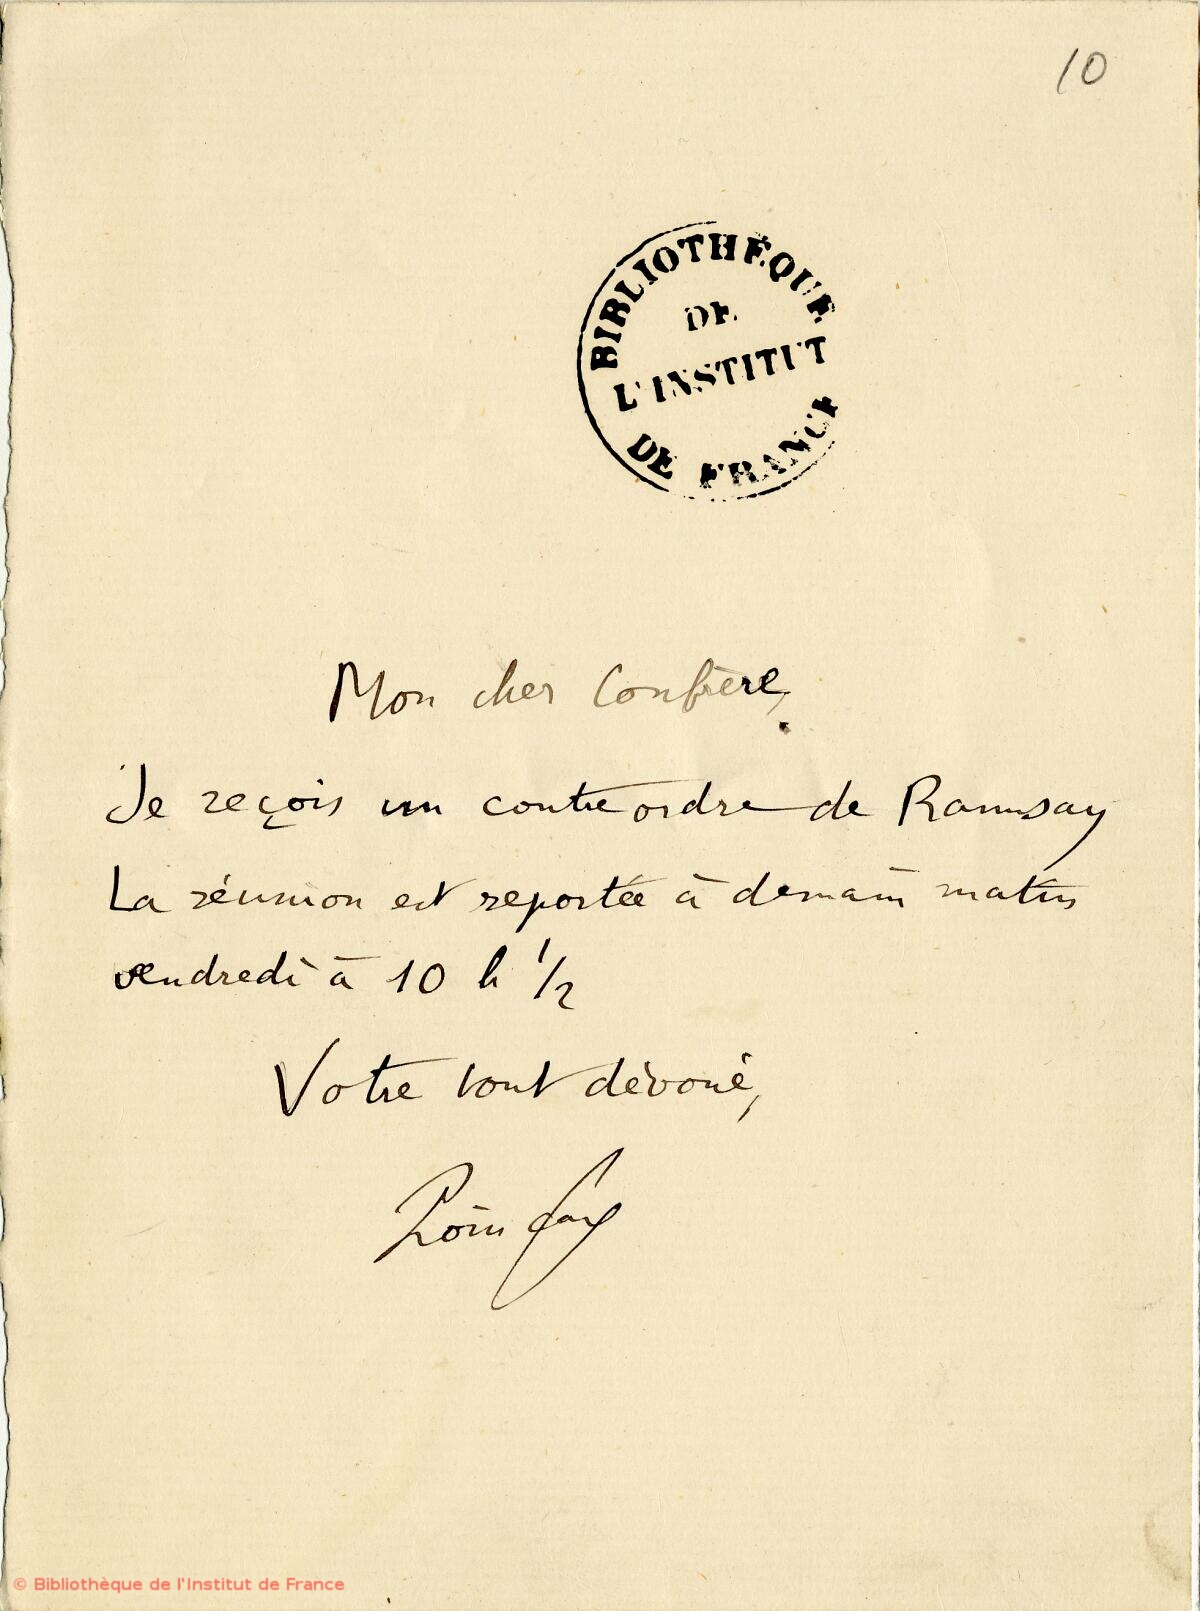 10
BIBLIOTHÈQUE
DE
L'INSTITUT
DE FRANCE
Mon cher Confrère,
Je reçois un contreordre de Ramsay
La réunion est reportée à demain matin
vendredi à 10 h 1/2
Votre tout dévoué,
Poincaré
© Bibliothèque de l'Institut de France